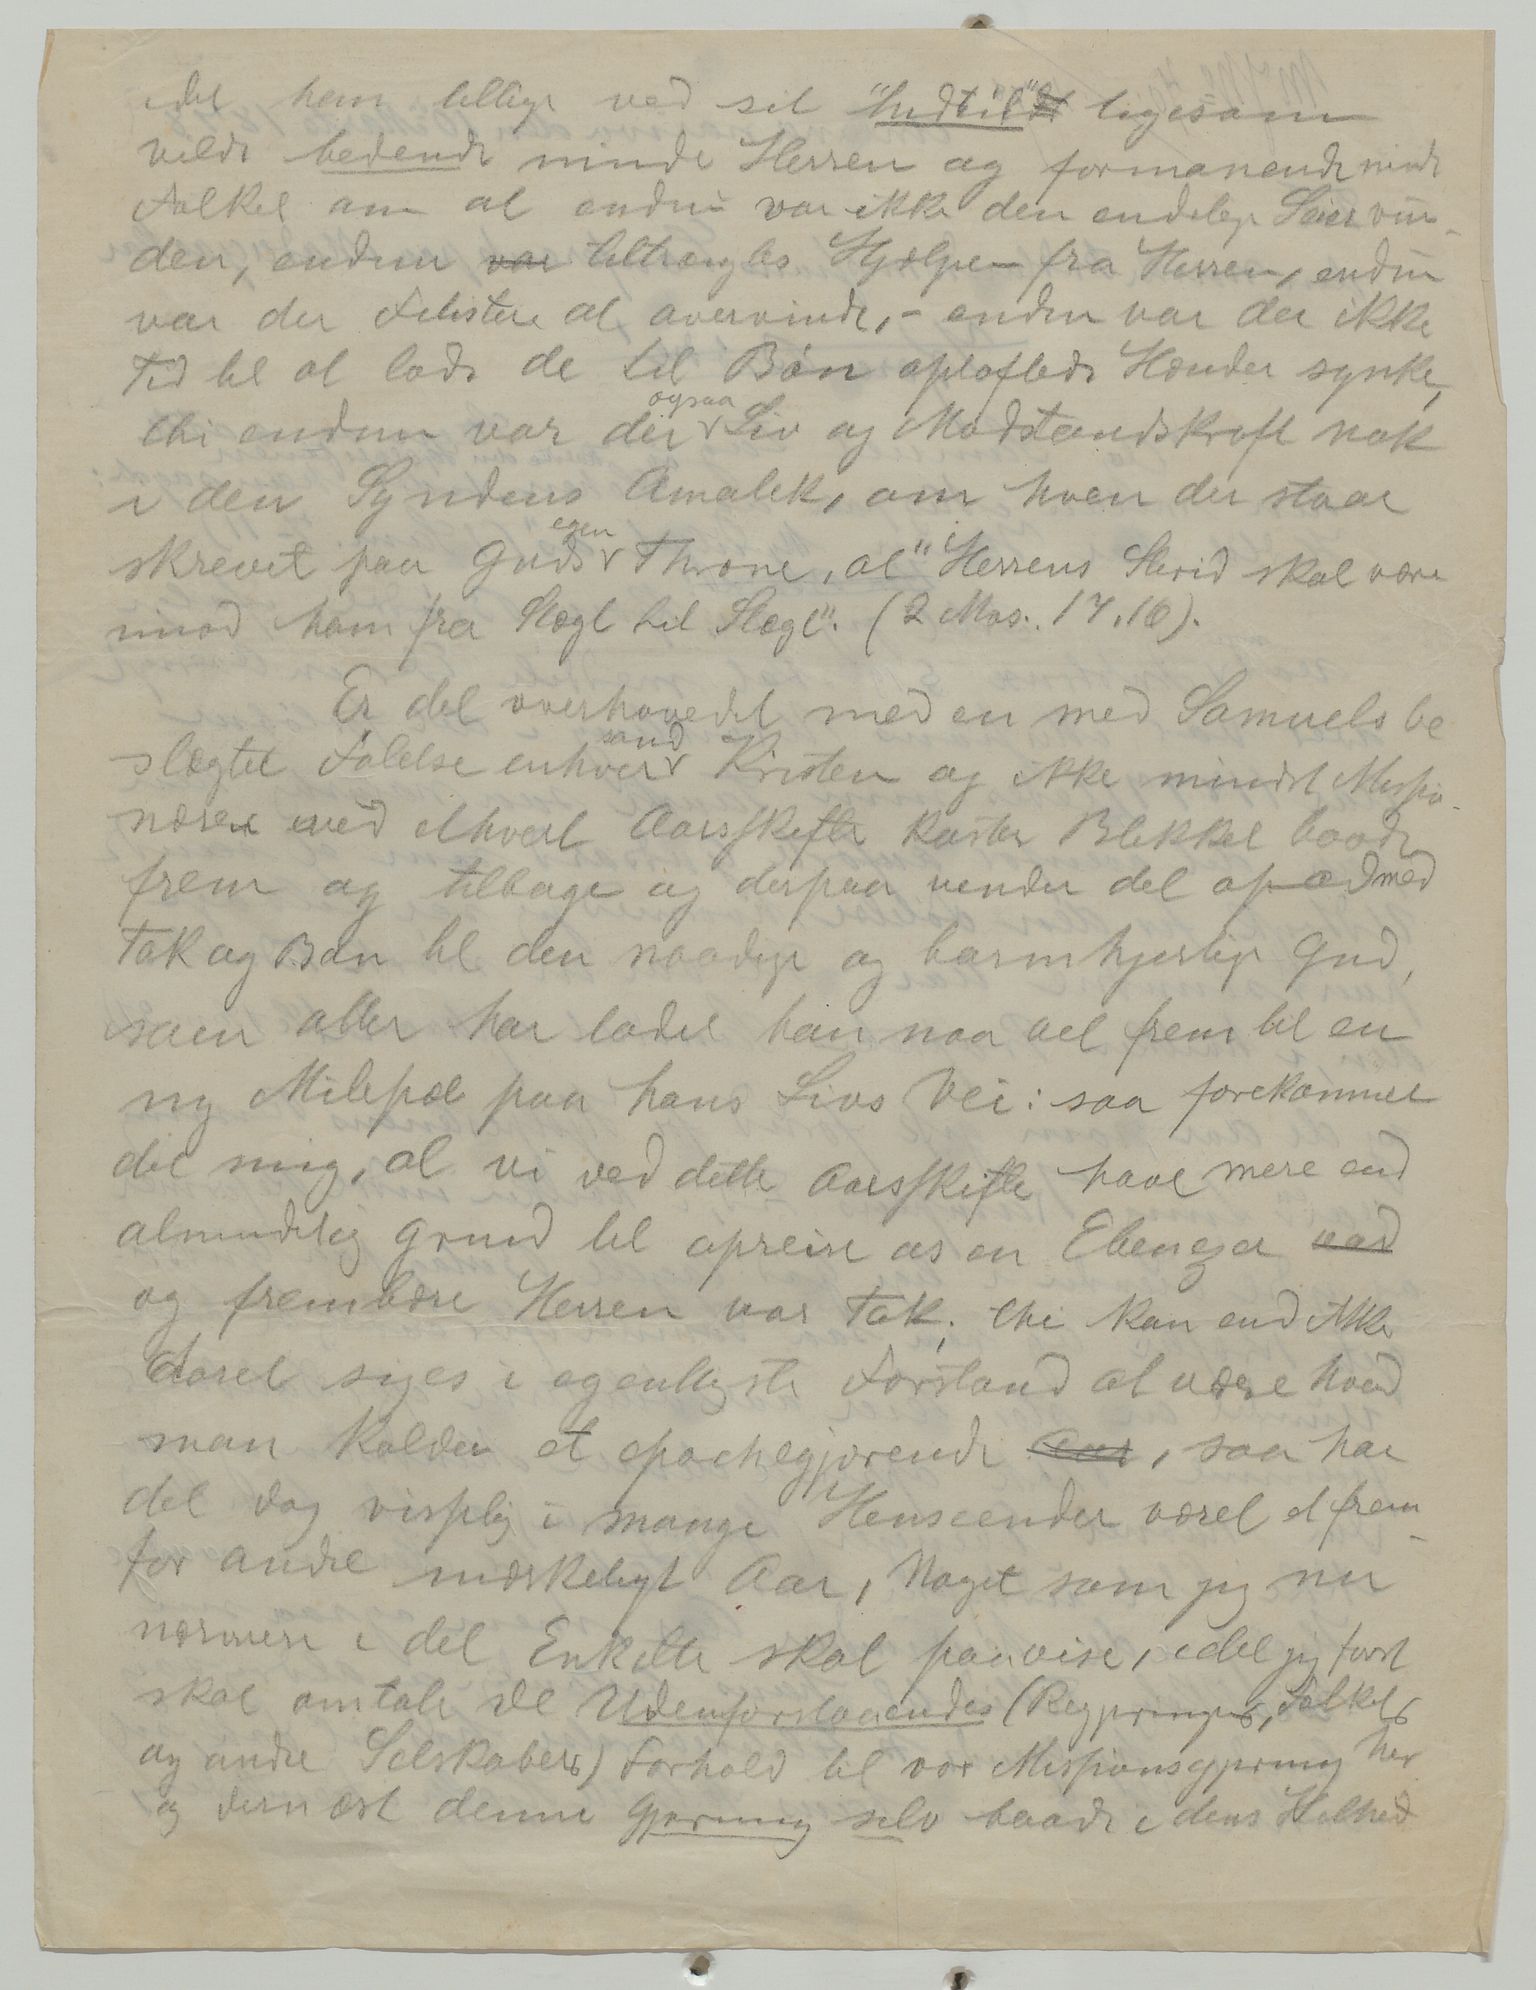 idet han tillige ved sit "Indtil" ligesom
vilde bedende minde Herren og formanende minde
Folket om at endnu var ikke den endelige Seier vun-
den, endnu var tiltrængtes Hjælpen fra Herren, endnu
var der Filistere at overvinde, - endnu var der ikke
Tid til at lade de til Bøn opløftede Hænder synke,
thi endnu var der ogsaa Liv og Modstandskraft nok
i den Syndens Amalek, om hvem der staar
skrevet paa Guds egen Throne, at "Herrens Strid skal være
imod ham fra Slægt til Slægt". (2 Mos. 17.16).
Er det overhovedet med en med Samuels be
slægtet Følelse enhver sand Kristen og ikke mindst Missio-
nærer ved ethvert Aarsskifte kaster Blikket baade
frem og tilbage og derpaa vender det opad med
Tak og Bøn til den naadige og barmhjertige Gud,
som atter har ladet ham naa vel frem til en
ny Milepæl paa hans Livs Vei: saa forekommer
det mig, at vi ved dette Aarsskifte have mere end
almindelig Grund til opreise os en Ebenezer
og frembære Herren vor Tak; thi kan end ikke
Aaret siges i egentligste Forstand at være hvad
man kalder et epochegjørende Aar, saa har
det dog visselig i mange Henseender været et frem-
for andre mærkeligt Aar, Noget som jeg nu
nærmere i det Enkelte skal paavise, idet jeg først
skal omtale de Udenforstaaendes (Regjeringens, Folkets
og andre Selskabers) Forhold til vor Missionsgjerning her
og dernæst denne Gjerning selv baade i dens Helhed